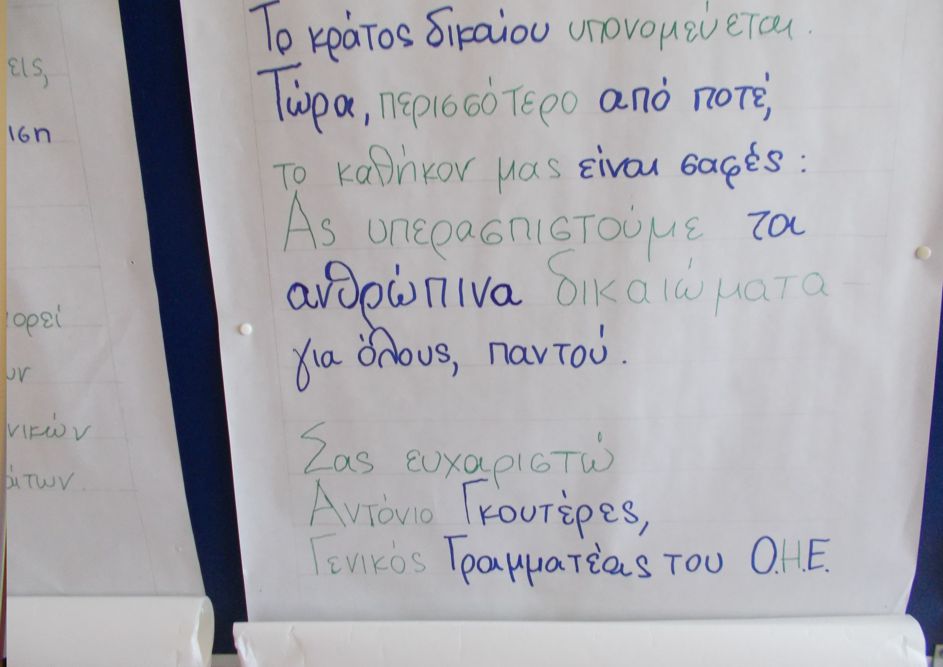 εις,
ιση
ορεί
υν
νικών
άτων
Το κράτος δικαίου υπονομεύεται.
Τώρα, περισσότερο από ποτέ,
το καθήκον μας είναι σαφές:
Ας υπερασπιστούμε τα
ανθρώπινα δικαιώματα
για όλους, παντού.
Σας ευχαριστώ
Αντόνιο Γκουτέρες,
Γενικός Γραμματέας του Ο.Η.Ε.